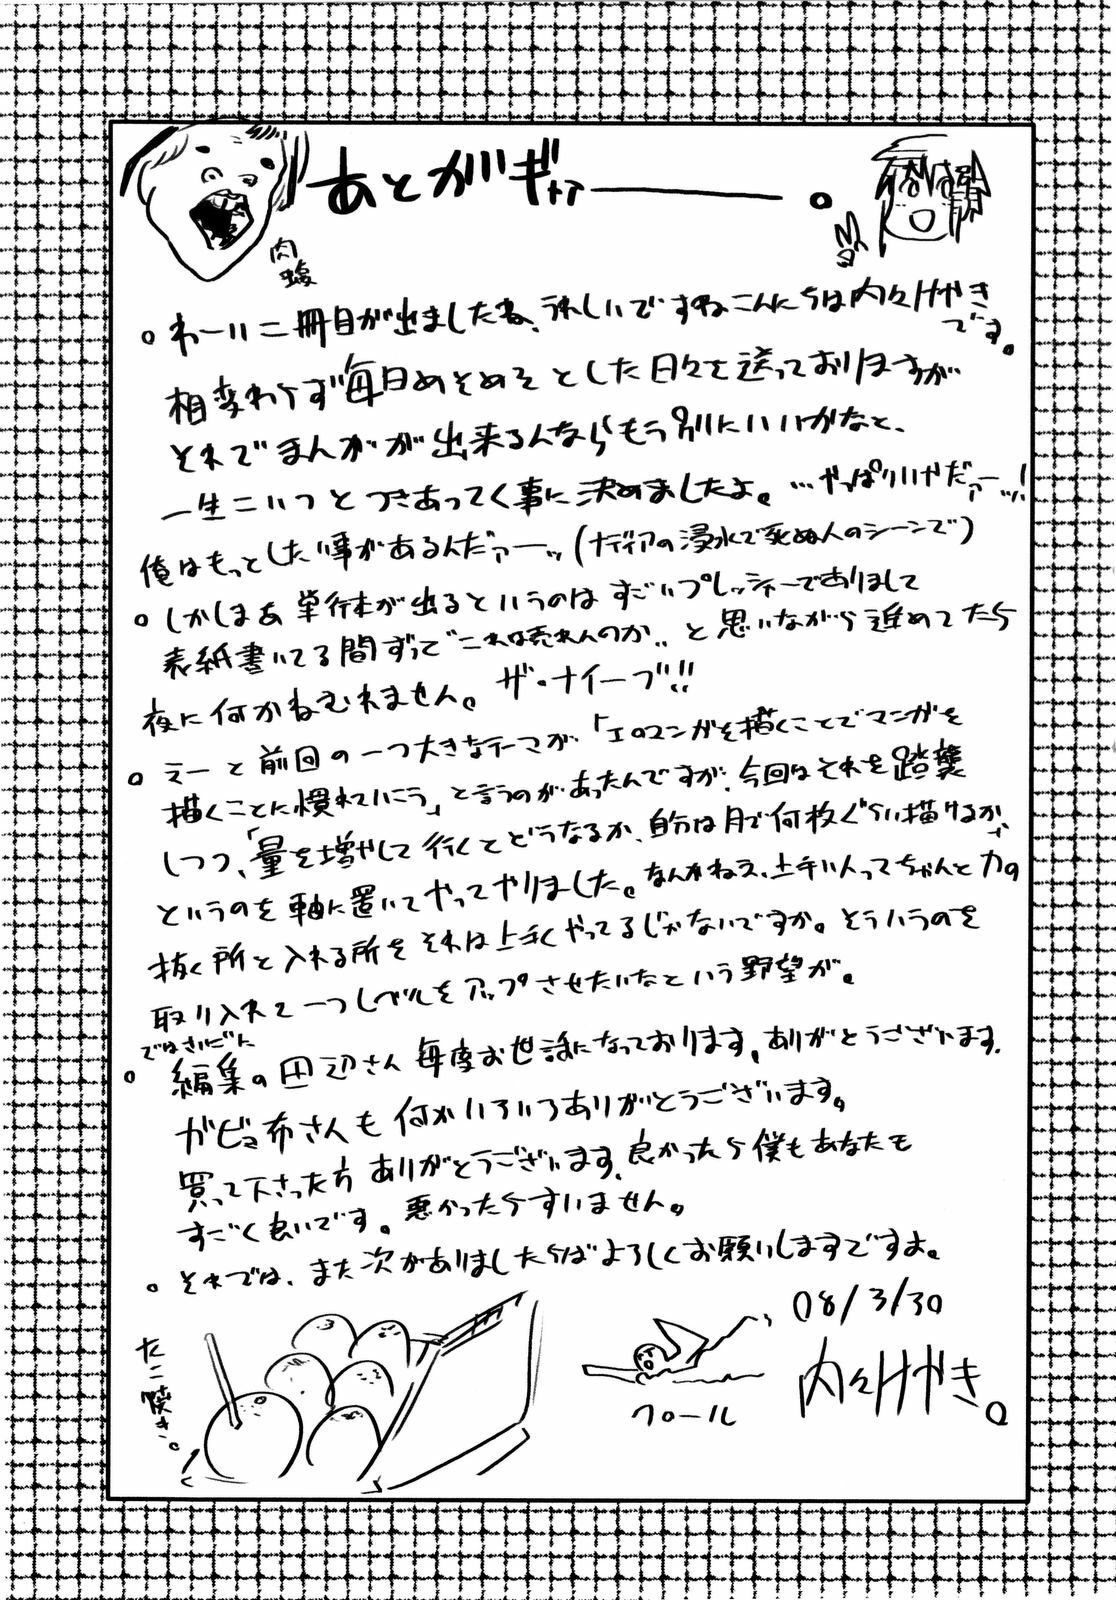 あとがギャアー。
肉蝮
○わーい二冊目が出ましたね、うれしいですねこんにちは内々けやき
です。
相変わらず毎日めそめそとした日々を送っておりますが
それでまんがが出来るんならもう別にいいかなと、
一生こいつとつきあってく事に決めましたよ。…やっぱりいやだァーッ!
俺はもっとしたい事があるんだァーッ(ナディアの浸水で死ぬ人のシーンで)
○しかしまあ単行本が出るというのはすごいプレッシャーでありまして
表紙書いてる間ずって“これは売れんのか”と思いながら進めてたら
夜に何かねむれません。ザ・ナイーブ!!
○えーと前回の一つ大きなテーマが「エロマンガを描くことでマンガを
描くことに慣れていこう」と言うのがあったんですが、今回はそれを踏襲
しつつ、「量を増やして行くとどうなるか、自分は月で何枚ぐらい描けるか」
というのを軸に置いてやってやりました。なんかねえ、上手い人ってちゃんと力の
抜く所と入れる所をそれは上手くやってるじゃないですか。そういうのを
取り入れて一つレベルをアップさせたいなという野望が。
ではさいごに
○編集の田辺さん毎度お世話になっております。ありがとうございます。
ガビョ布さんも何かいろいろありがとうございます。
買って下さった方ありがとうございます。良かったら僕もあなたも
すごく良いです。悪かったらすいません。
○それでは、また次がありましたらばよろしくお願いしますですよ。
08/3/30
内々けやき。
たこ焼き。
クロール